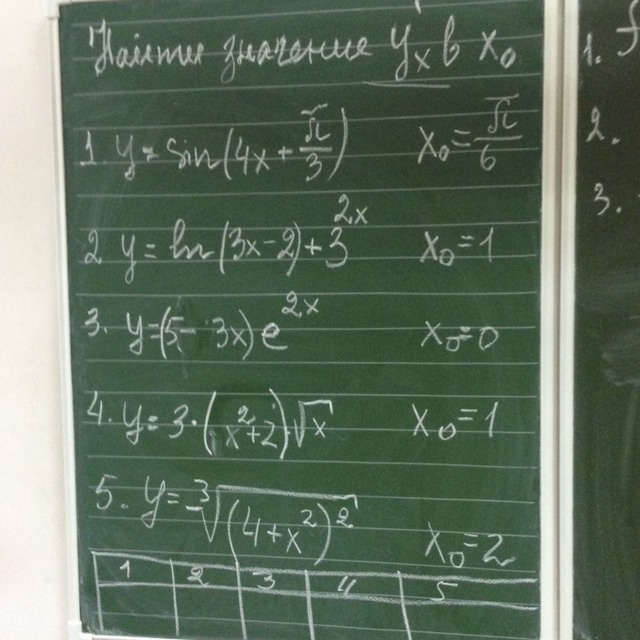 Найти значение y'x в x₀
1. y = sin(4x + π/3) x₀ = π/6
2 y = ln(3x-2) + 3^2x x₀ = 1
3. y = (5 - 3x) e^2x x₀ = 0
4. y = 3·(x²+2)·√x x₀ = 1
5. y = ³√(4+x²)² x₀ = 2
1 2 3 4 5
1.
2.
3.